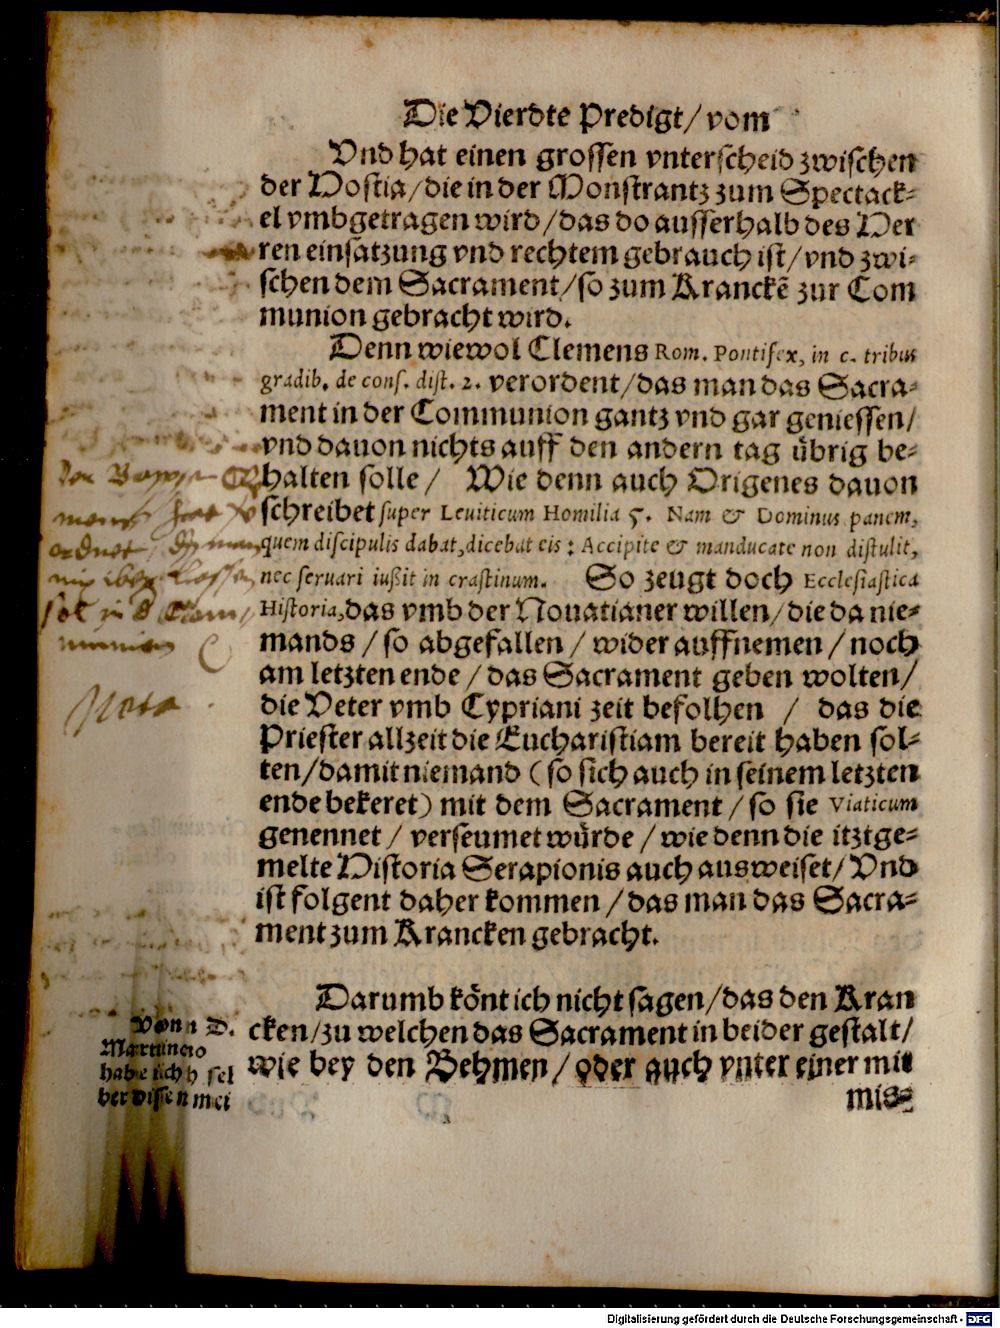 Die Vierdte Predigt/vom
Vnd hat einen grossen vnterscheid zwischen
der Hostia/die in der Monstrantz zum Spectack-
el vmbgetragen wird/das do ausserhalb des Her
ren einsatzung vnd rechtem gebrauch ist/vnd zwi-
schen dem Sacrament/so zum Kranckē zur Com
munion gebracht wird.
Denn wiewol Clemens Rom. Pontifex, in c. tribus
gradib. de cons. dist. 2. verordent/das man das Sacra-
ment in der Communion gantz vnd gar geniessen/
vnd dauon nichts auff den andern tag übrig be-
halten solle/ Wie denn auch Origenes dauon
schreibet super Leuiticum Homilia 5. Nam & Dominus panem,
quem discipulis dabat, dicebat eis: Accipite & manducate non distulit,
nec seruari iußit in crastinum. So zeugt doch Ecclesiastica
Historia, das vmb der Nouatianer willen/die da nie-
mands/so abgefallen/wider auffnemen/noch
am letzten ende/das Sacrament geben wolten/
die Veter vmb Cypriani zeit befolhen / das die
Priester allzeit die Eucharistiam bereit haben sol-
ten/damit niemand (so sich auch in seinem letzten
ende bekeret) mit dem Sacrament/so sie Viaticum
genennet/verseumet würde/wie denn die itztge-
melte Historia Serapionis auch ausweiset/Vnd
ist folgent daher kommen/das man das Sacra-
ment zum Krancken gebracht.
Darumb könt ich nicht sagen/das den Kran
cken/zu welchen das Sacrament in beider gestalt/
wie bey den Behmen/oder auch vnter einer mit
mis-
Vonn D.
Martineio
habe ich h sel
ber dissen mei
Nota
Digitalisierung gefördert durch die Deutsche Forschungsgemeinschaft - DFG